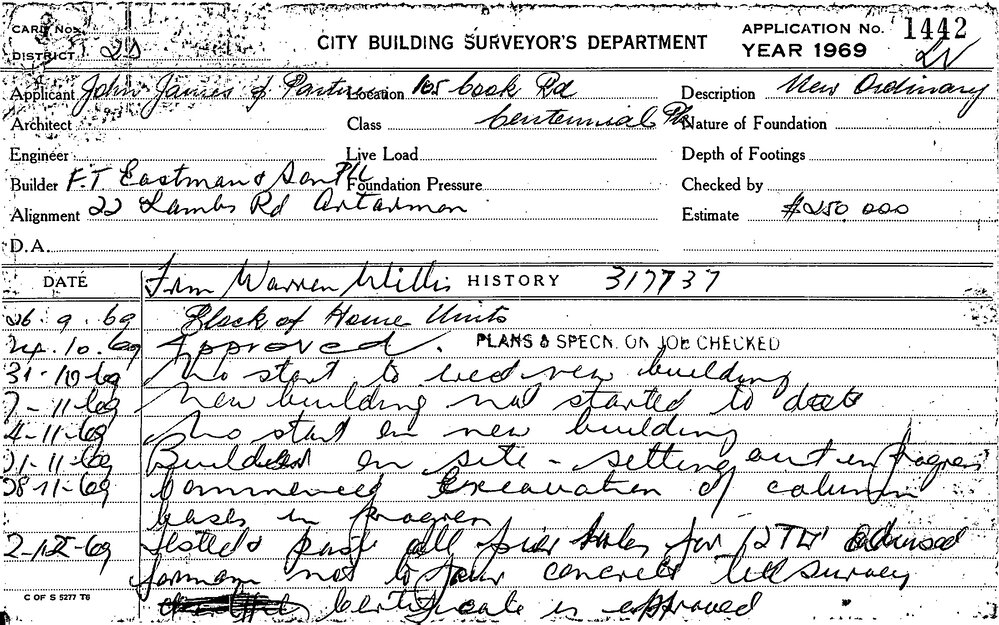 CARD No.
DISTRICT 2S
CITY BUILDING SURVEYOR'S DEPARTMENT
APPLICATION No. 1442
YEAR 1969
Applicant John James & Partners Location 105 Cook Rd Description New Ordinary
Architect Class Centennial Pk Nature of Foundation
Engineer Live Load Depth of Footings
Builder F.T Eastman & Son P/L Foundation Pressure Checked by
Alignment 22 Lambs Rd Artarmon Estimate $250,000
D.A.
DATE From Warren Willis HISTORY 317737
26.9.69 Block of Home Units
24.10.69 Approved. PLANS & SPECN. ON JOB CHECKED
31-10-69 No start to erect new building
7-11-69 New building not started to date
4-11-69 No start on new building
21-11-69 Builder on site - setting out in progress
28-11-69 Commenced Excavation of column
bases in progress
2-12-69 Tested & pass all pier holes for advised
foreman not to pour concrete till survey
Certificate is approved
C OF S 5277 T6